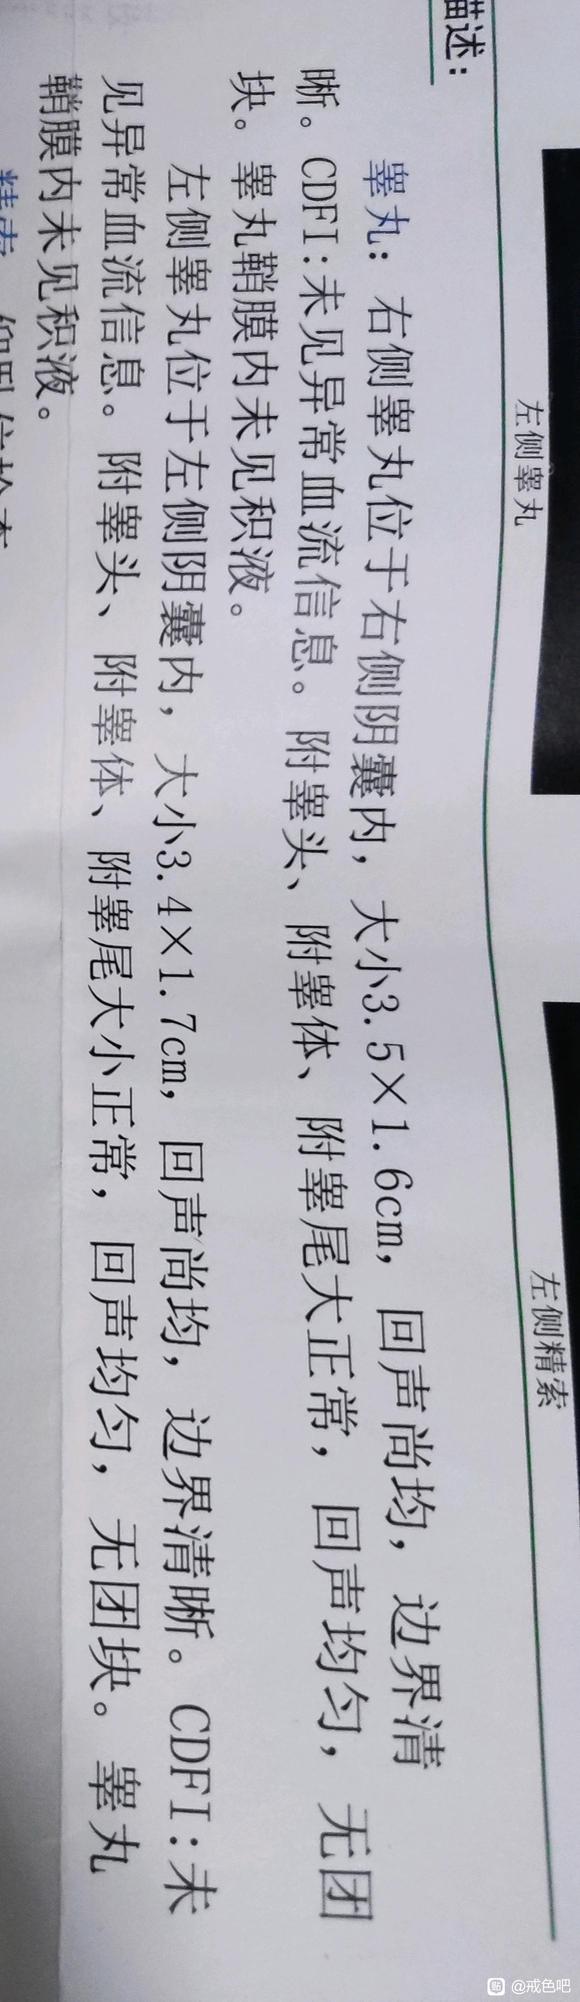 左侧睾丸
左侧精索
描述：
睾丸：右侧睾丸位于右侧阴囊内，大小3.5×1.6cm，回声尚均，边界清
晰。CDFI:未见异常血流信息。附睾头、附睾体、附睾尾大正常，回声均匀，无团
块。睾丸鞘膜内未见积液。
左侧睾丸位于左侧阴囊内，大小3.4×1.7cm，回声尚均，边界清晰。CDFI:未
见异常血流信息。附睾头、附睾体、附睾尾大小正常，回声均匀，无团块。睾丸
鞘膜内未见积液。
精索
贴 @戒色吧